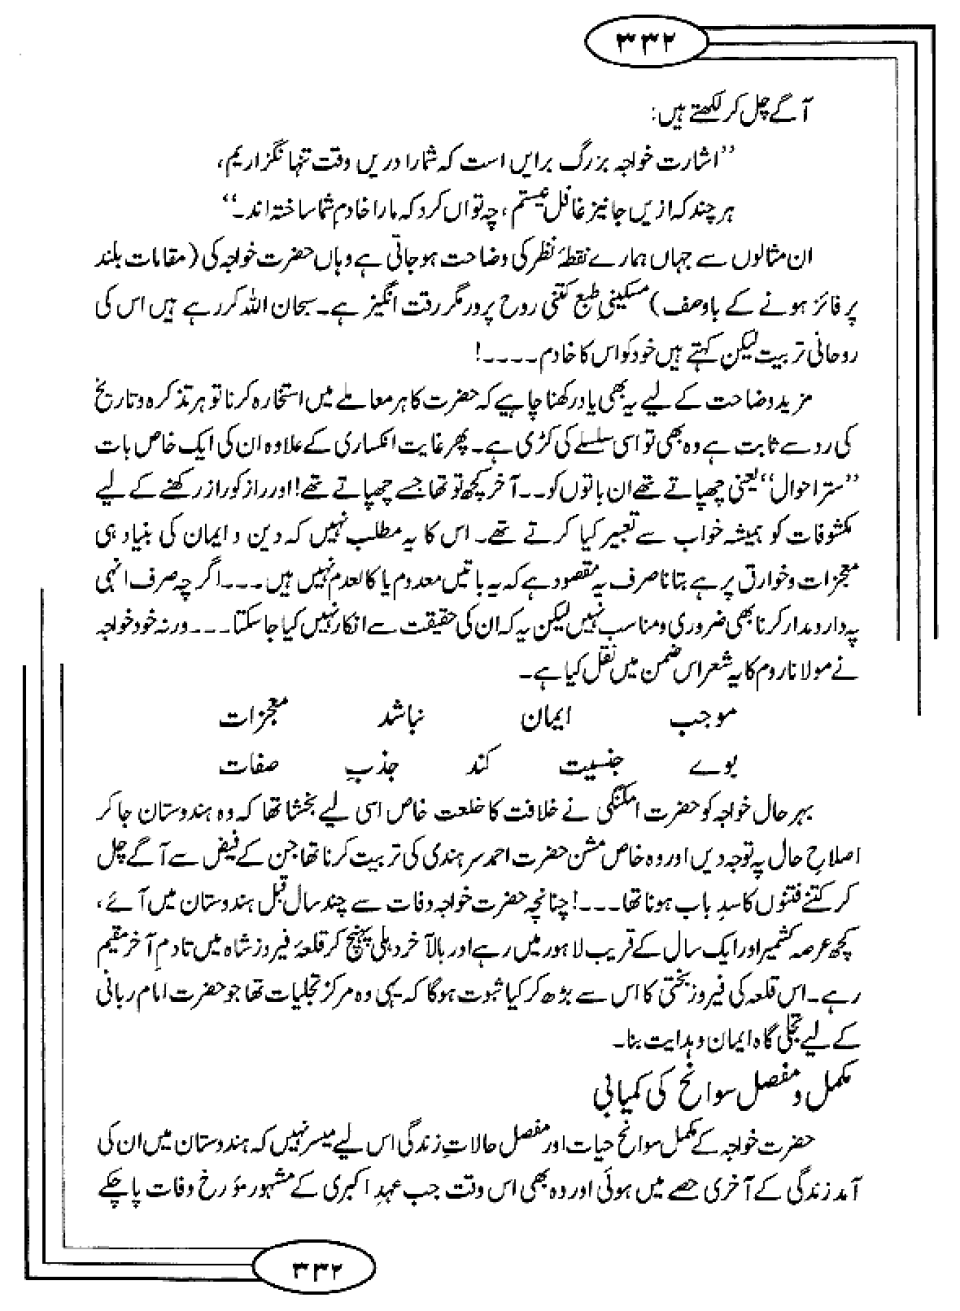 ۳۳۲
آگے چل کر لکھتے ہیں:
’’اشارت خواجہ بزرگ برایں است کہ شمارا دریں وقت تنہا نگزاریم،
ہر چند کہ ازیں جا نیز غافل نیستم، چہ تواں کرد کہ مارا خادم شما ساختہ اند۔‘‘
ان مثالوں سے جہاں ہمارے نقطۂ نظر کی وضاحت ہو جاتی ہے وہاں حضرت خواجہ کی (مقامات بلند
پر فائز ہونے کے باوصف) مسکینیِ طبع کتنی روح پرور مگر رقت انگیز ہے۔ سبحان اللہ کر رہے ہیں اس کی
روحانی تربیت لیکن کہتے ہیں خود کو اس کا خادم۔۔۔۔!
مزید وضاحت کے لیے یہ بھی یاد رکھنا چاہیے کہ حضرت کا ہر معاملے میں استخارہ کرنا تو ہر تذکرہ و تاریخ
کی رد سے ثابت ہے وہ بھی تو اسی سلسلے کی کڑی ہے۔ پھر غایت انکساری کے علاوہ ان کی ایک خاص بات
’’ستر احوال‘‘ یعنی چھپاتے تھے ان باتوں کو۔۔ آخر کچھ تو تھا جسے چھپاتے تھے! اور راز کو راز رکھنے کے لیے
مکشوفات کو ہمیشہ خواب سے تعبیر کیا کرتے تھے۔ اس کا یہ مطلب نہیں کہ دین و ایمان کی بنیاد ہی
معجزات و خوارق پر ہے بتانا صرف یہ مقصود ہے کہ یہ باتیں معدوم یا کالعدم نہیں ہیں۔۔۔ اگرچہ صرف انہی
پہ دارومدار کرنا بھی ضروری و مناسب نہیں لیکن یہ کہ ان کی حقیقت سے انکار نہیں کیا جا سکتا۔۔۔ ورنہ خود خواجہ
نے مولانا روم کا یہ شعر اس ضمن میں نقل کیا ہے۔
موجب ایمان نباشد معجزات
بوے جنسیت کند جذبِ صفات
بہر حال خواجہ کو حضرت امکنگی نے خلافت کا خلعت خاص اسی لیے بخشا تھا کہ وہ ہندوستان جا کر
اصلاحِ حال پہ توجہ دیں اور وہ خاص مشن حضرت احمد سرہندی کی تربیت کرنا تھا جن کے فیض سے آگے چل
کر کتنے فتنوں کا سدِ باب ہونا تھا۔۔۔! چنانچہ حضرت خواجہ وفات سے چند سال قبل ہندوستان میں آئے،
کچھ عرصہ کشمیر اور ایک سال کے قریب لاہور میں رہے اور بالآخر دہلی پہنچ کر قلعۂ فیروز شاہ میں تادمِ آخر مقیم
رہے۔ اس قلعہ کی فیروز بختی کا اس سے بڑھ کر کیا ثبوت ہوگا کہ یہی وہ مرکز تجلیات تھا جو حضرت امام ربانی
کے لیے تجلی گاہ ایمان و ہدایت بنا۔
مکمل و مفصل سوانح کی کمیابی
حضرت خواجہ کے مکمل سوانح حیات اور مفصل حالاتِ زندگی اس لیے میسر نہیں کہ ہندوستان میں ان کی
آمد زندگی کے آخری حصے میں ہوئی اور وہ بھی اس وقت جب عہدِ اکبری کے مشہور مؤرخ وفات پا چکے
۳۳۲